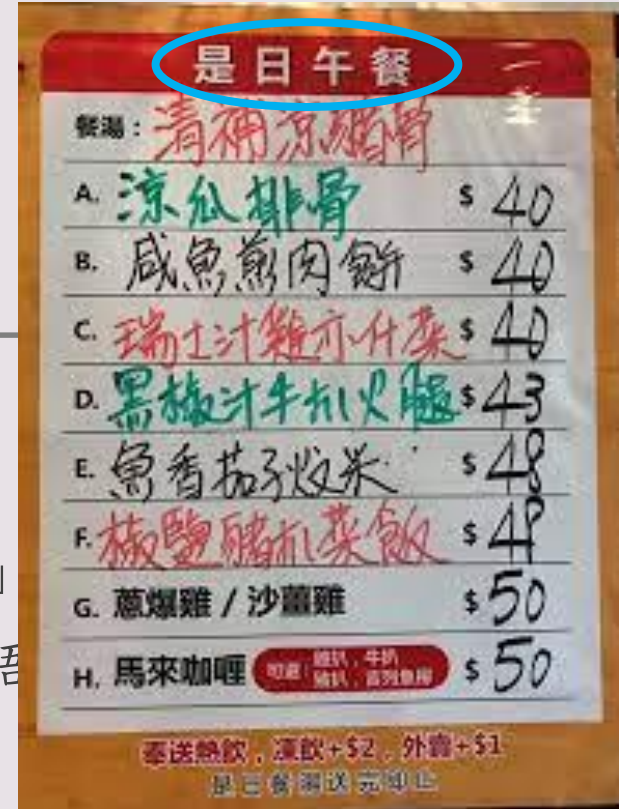 是日午餐
餐湯：清補涼豬骨
A. 涼瓜排骨 $ 40
B. 咸魚煎肉餅 $ 40
C. 瑞士汁雞亦什菜 $ 40
D. 黑椒汁牛扒火腿 $ 43
E. 魚香茄子炆米 $ 48
F. 椒鹽豬扒菜飯 $ 48
G. 蔥爆雞 / 沙薑雞 $ 50
H. 馬來咖喱 可選：雞扒，牛扒 $ 50
豬扒，吉列魚柳
奉送熱飲，凍飲+$2，外賣+$1
是日餐湯送完即止
」